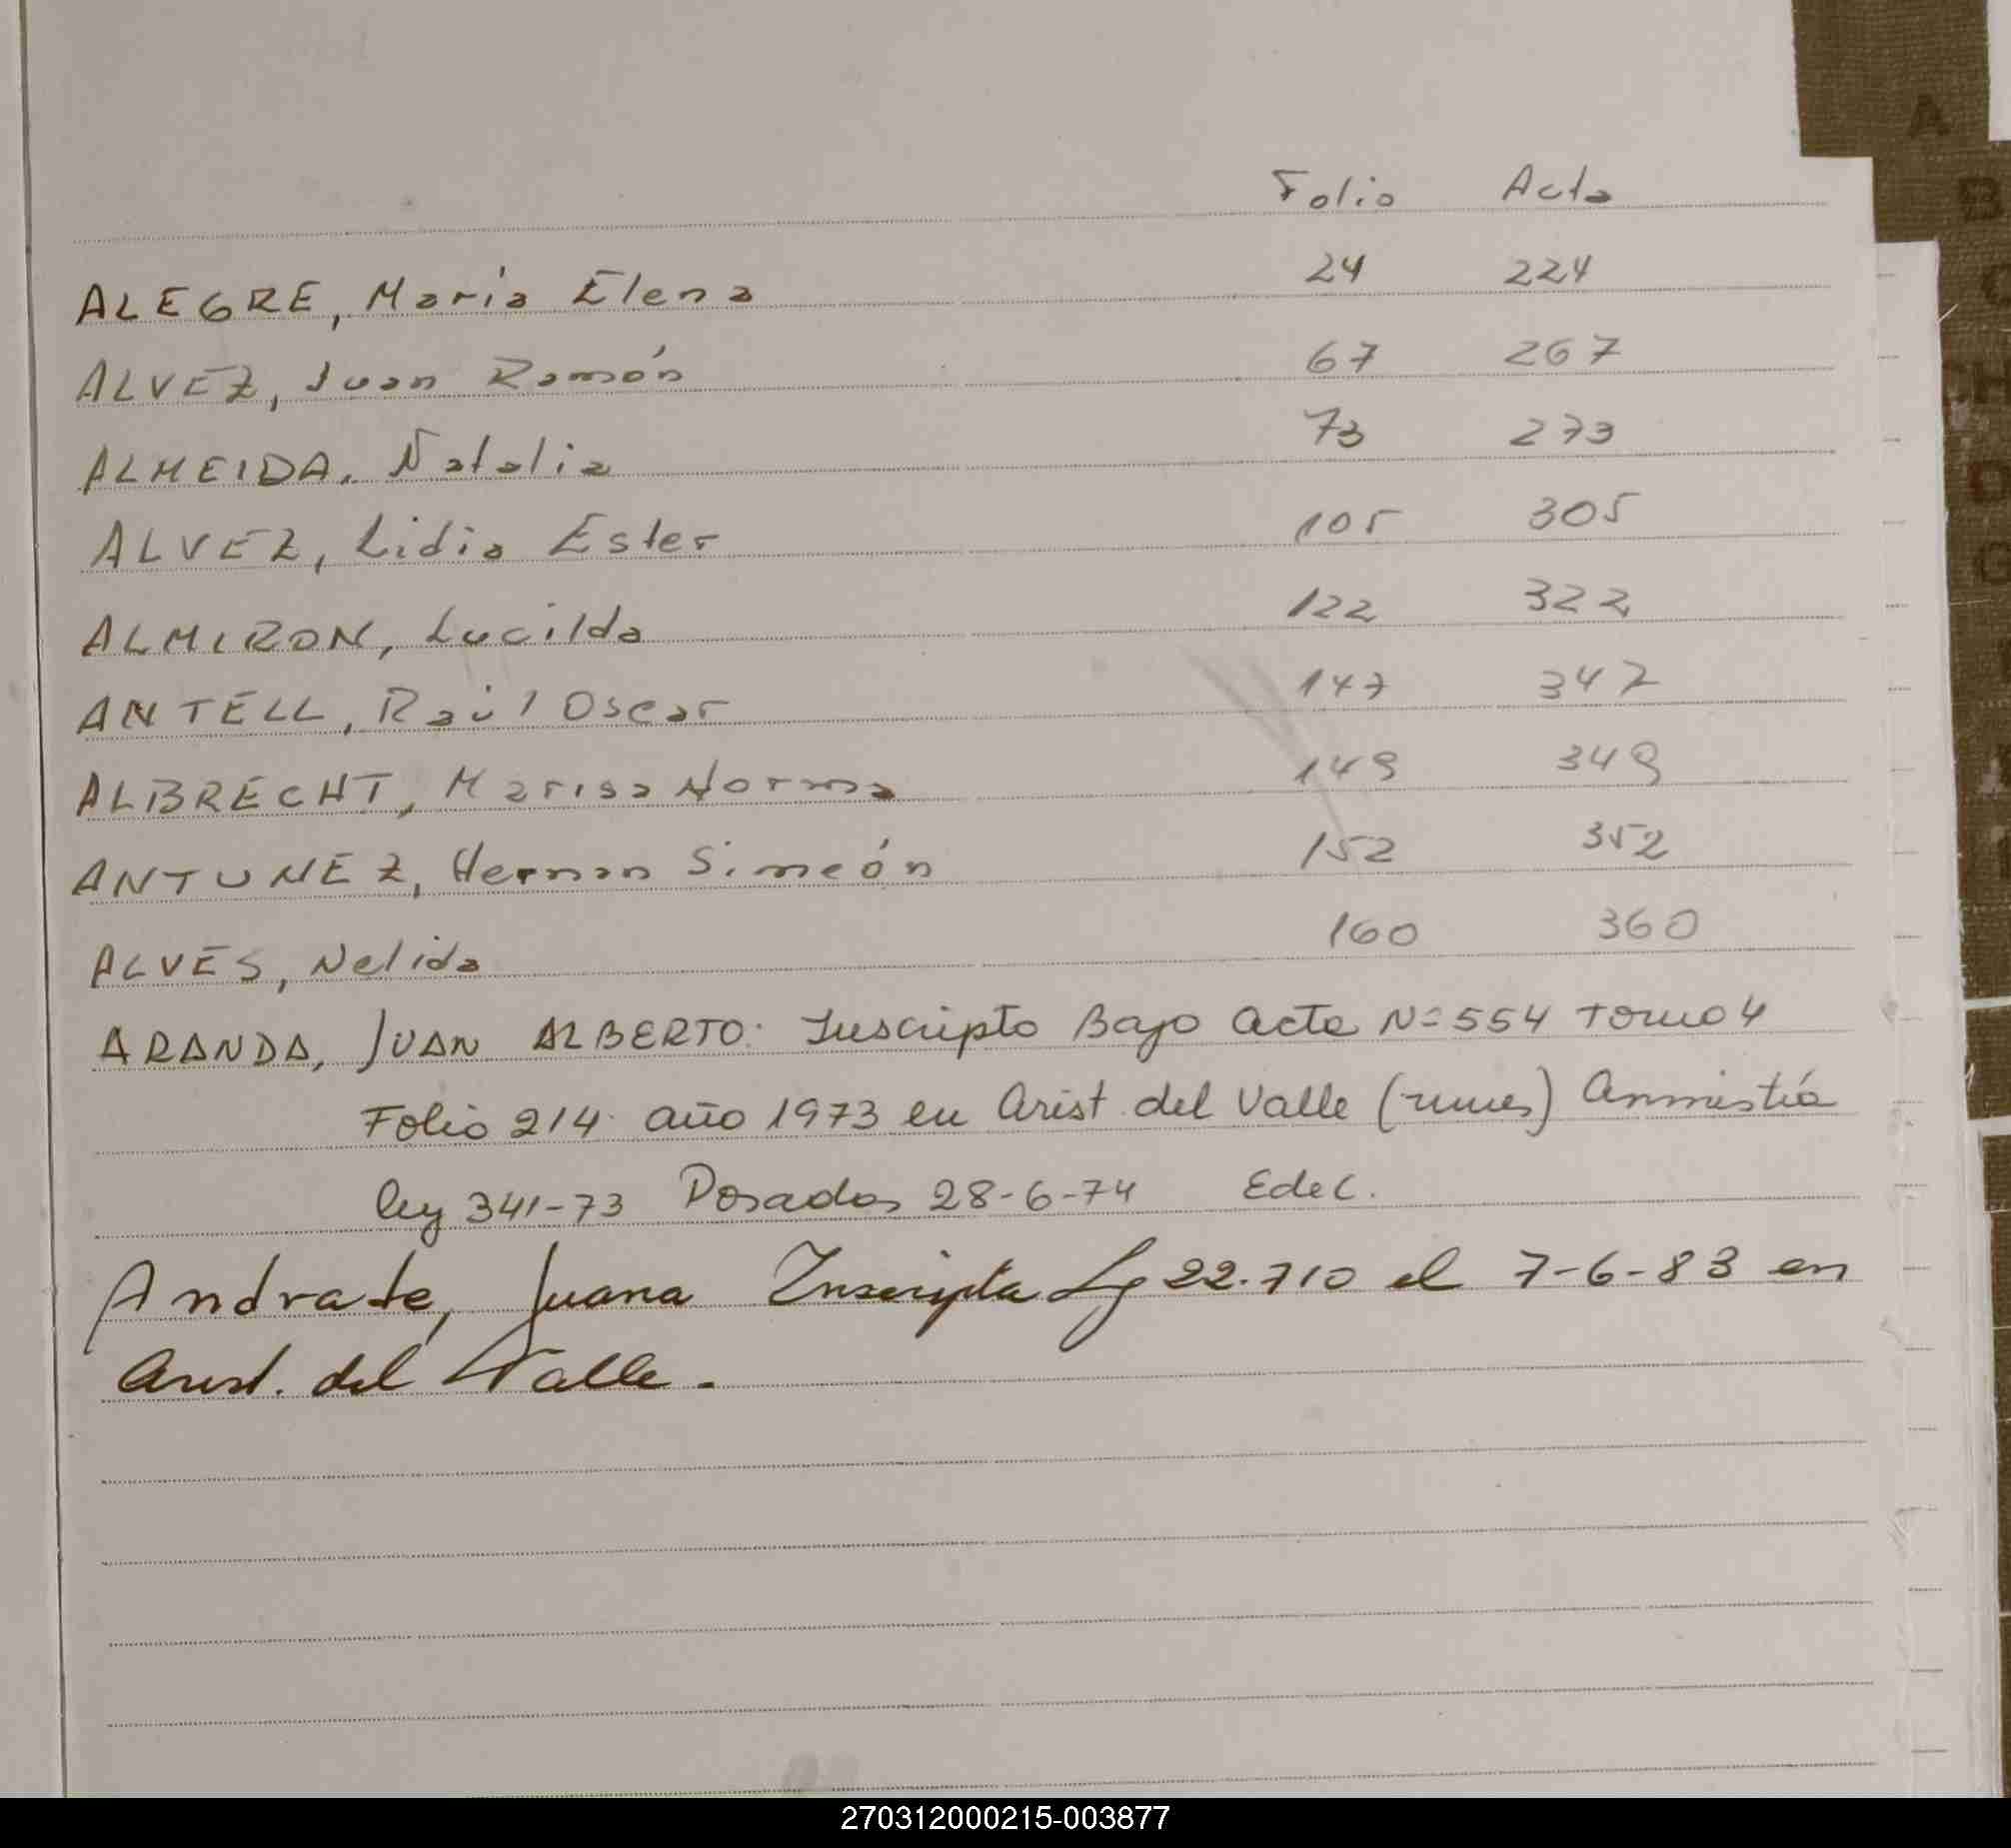 Folio Acta
ALEGRE, María Elena 24 224
ALVEZ, Juan Ramón 67 267
ALMEIDA, Natalia 73 273
ALVEZ, Lidia Ester 105 305
ALMIRON, Lucilda 122 322
ANTELL, Raúl Oscar 147 347
ALBRECHT, Marisa Norma 149 349
ANTUNEZ, Hernan Simeón 152 352
ALVES, Nelida 160 360
ARANDA, JUAN ALBERTO: Inscripto Bajo acta N= 554 Tomo 4
Folio 214. año 1973 en Arist. del Valle Amnistía
ley 341-73 Posadas 28-6-74 Edel.
Andrade, Juana Inscripta Ley 22.710 el 7-6-83 en
Arist. del Valle.
A
B
C
CH
D
G
270312000215-003877